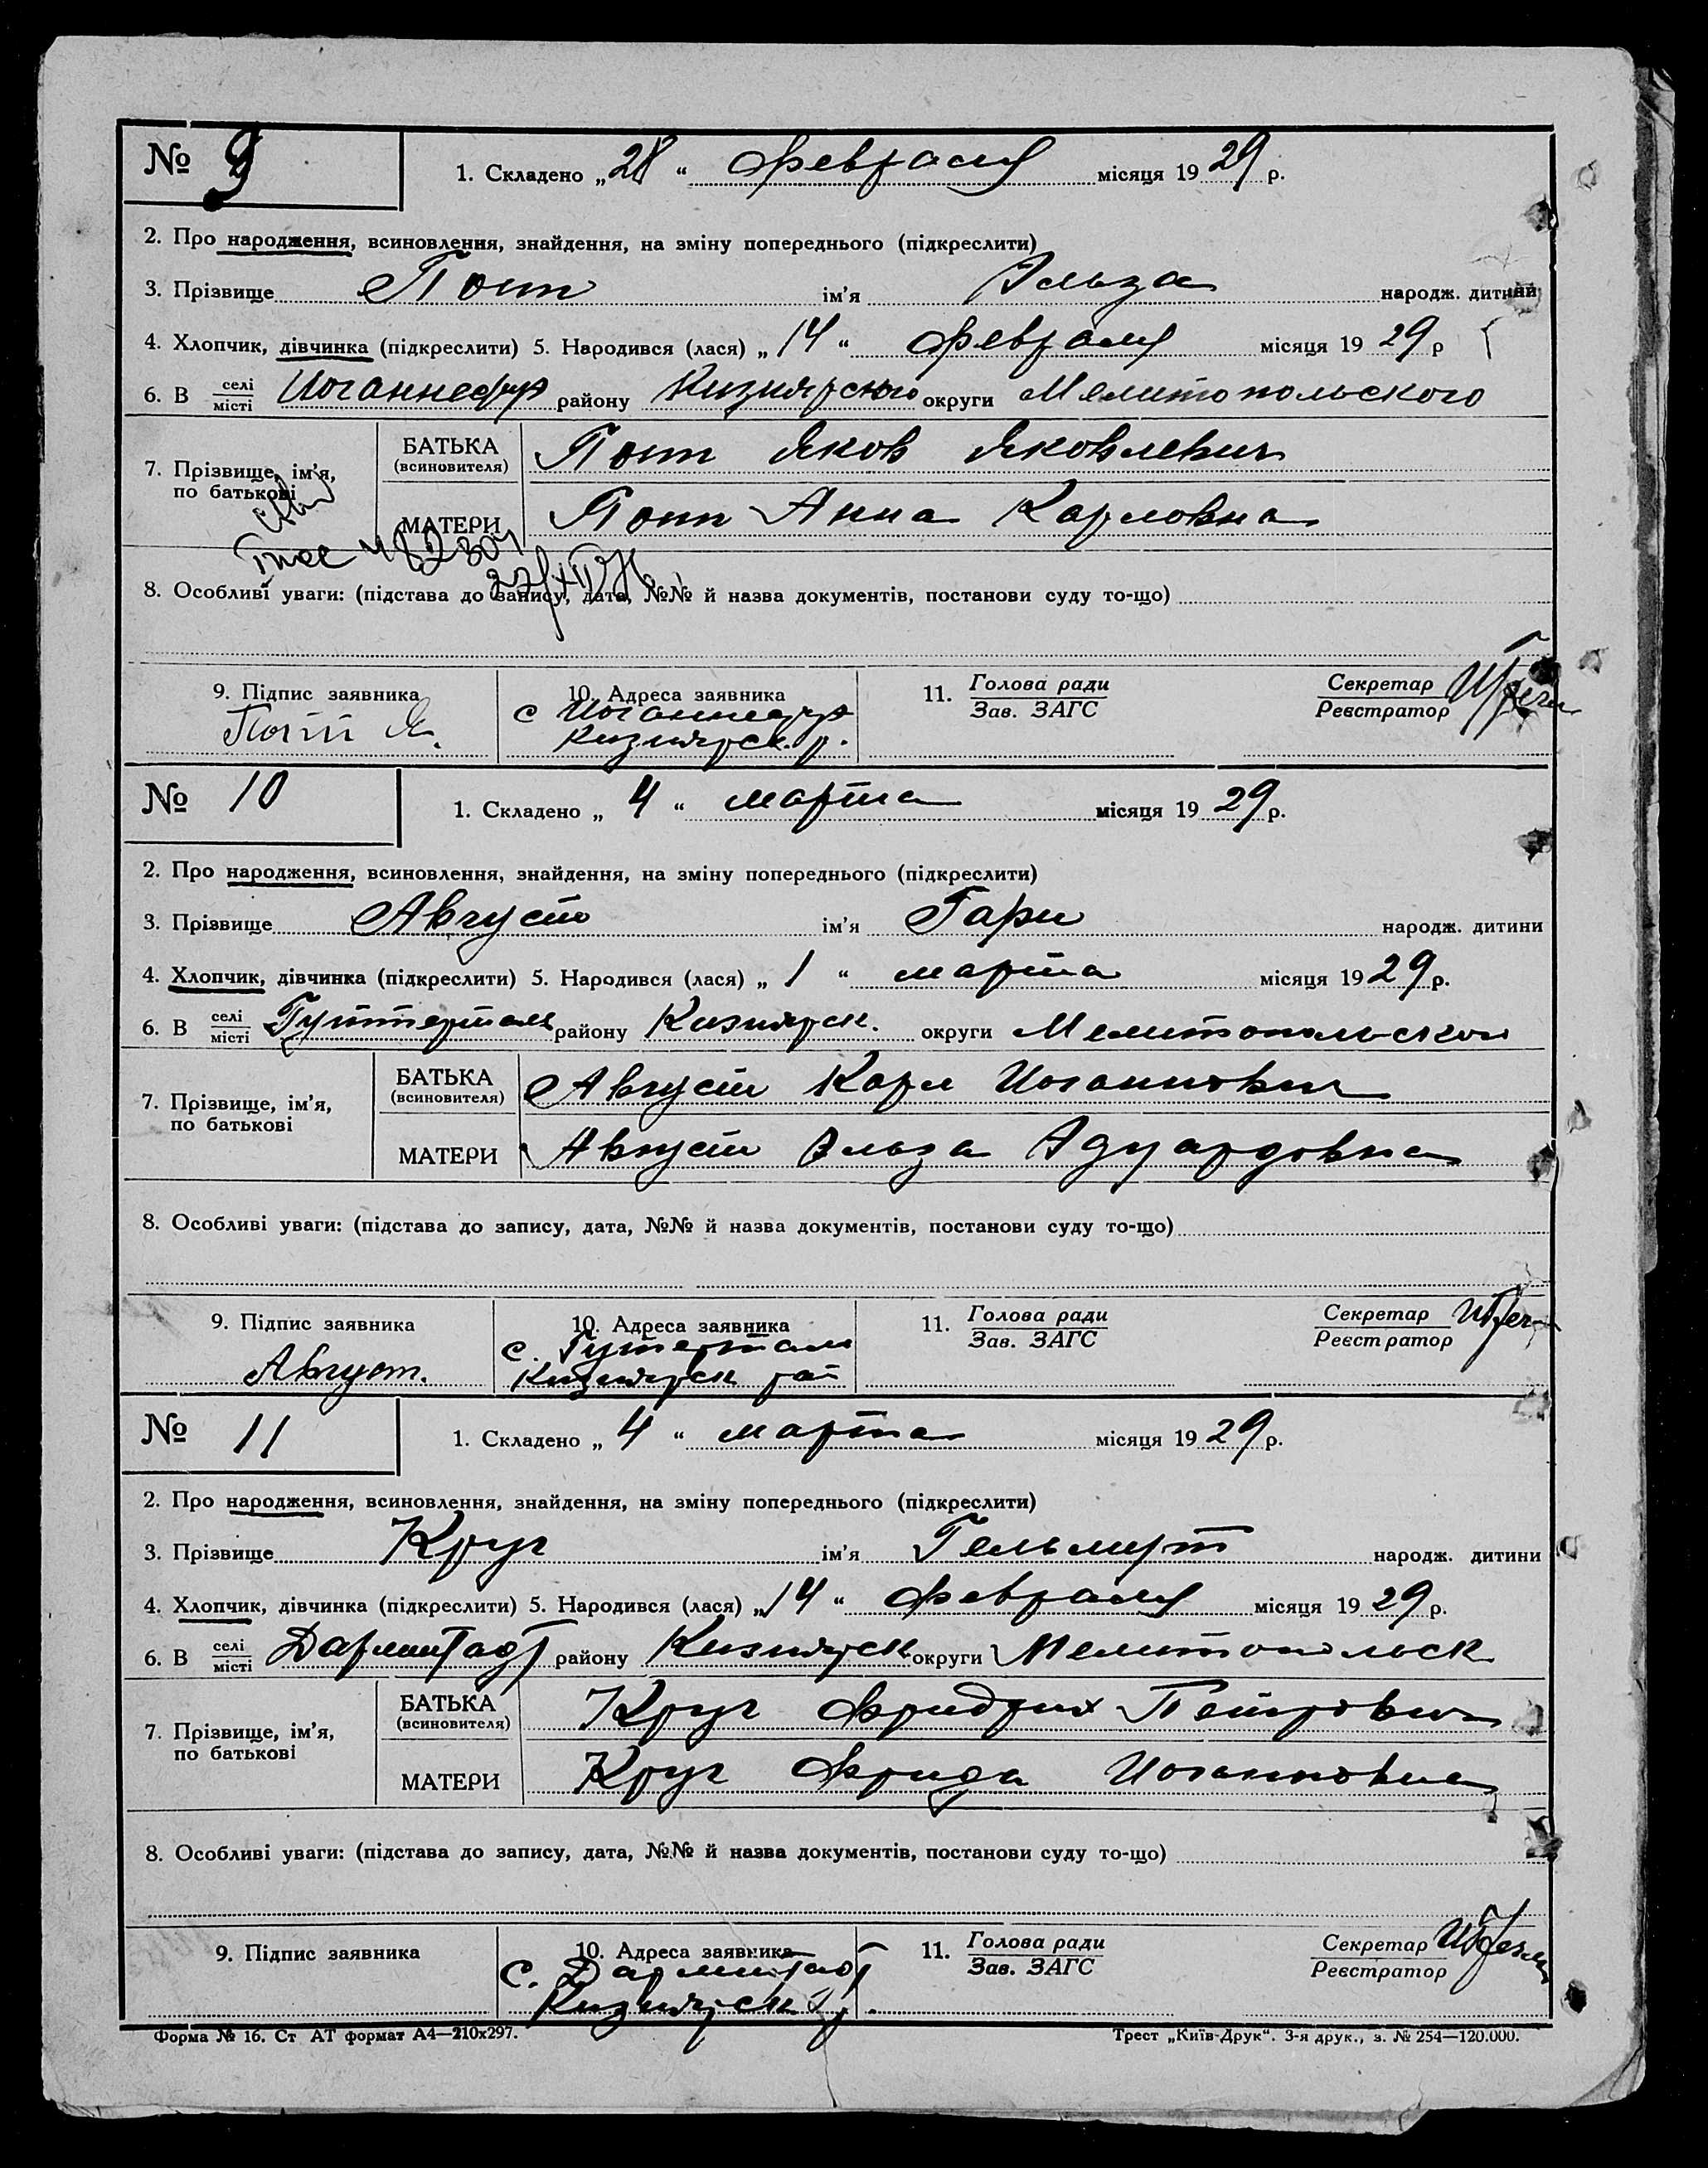 № 9 1. Складено „28“ февраля місяця 1929 р.
2. Про народження, всиновлення, знайдення, на зміну попереднього (підкреслити)
3. Прізвище Потт ім'я Эльза народж. дитини
4. Хлопчик, дівчинка (підкреслити) 5. Народився (лася) „14“ февраля місяця 1929 р
6. В селі місті Иоганнесру району Кизиярского округи Мелитопольского
7. Прізвище, ім'я, по батькові
БАТЬКА (всиновителя) Потт Яков Яковлевич
МАТЕРИ Потт Анна Карловна
8. Особливі уваги: (підстава до запису, дата, №№ й назва документів, постанови суду то-що)
9. Підпис заявника 10. Адреса заявника 11. Голова ради Секретар
Зав. ЗАГС Реєстратор
Потт Я. с Иоганнесру
Кизиярск. р.
№ 10 1. Складено „4“ марта місяця 1929 р.
2. Про народження, всиновлення, знайдення, на зміну попереднього (підкреслити)
3. Прізвище Август ім'я Гари народж. дитини
4. Хлопчик, дівчинка (підкреслити) 5. Народився (лася) „1“ марта місяця 1929 р.
6. В селі місті Гуттерталь району Кизиярск. округи Мелитопольской
7. Прізвище, ім'я, по батькові
БАТЬКА (всиновителя) Август Карл Иоганнович
МАТЕРИ Август Эльза Эдуардовна
8. Особливі уваги: (підстава до запису, дата, №№ й назва документів, постанови суду то-що)
9. Підпис заявника 10. Адреса заявника 11. Голова ради Секретар
Зав. ЗАГС Реєстратор
Август. с. Гутерталь
Кизиярск рай
№ 11 1. Складено „4“ марта місяця 1929 р.
2. Про народження, всиновлення, знайдення, на зміну попереднього (підкреслити)
3. Прізвище Круг ім'я Гельмут народж. дитини
4. Хлопчик, дівчинка (підкреслити) 5. Народився (лася) „14“ февраля місяця 1929 р.
6. В селі місті Дармштадт району Кизиярск округи Мелитопольск
7. Прізвище, ім'я, по батькові
БАТЬКА (всиновителя) Круг Фридрих Петрович
МАТЕРИ Круг Фрида Иоганновна
8. Особливі уваги: (підстава до запису, дата, №№ й назва документів, постанови суду то-що)
9. Підпис заявника 10. Адреса заявника 11. Голова ради Секретар
Зав. ЗАГС Реєстратор
с. Дармштадт
Кизиярск р.
Форма № 16. Ст АТ формат А4—210х297. Трест „Київ-Друк“. 3-я друк., з. № 254—120.000.